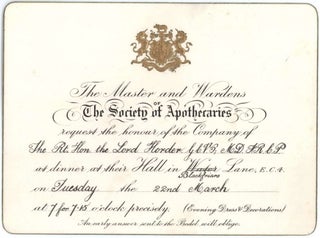 The Master and Wardens
of
The Society of Apothecaries
request the honour of the Company of
The Rt. Hon. the Lord Horder G.C.V.O., M.D., F.R.C.P.
at dinner at their Hall in Water Lane, E.C.4.
Blackfriars
on Tuesday the 22nd March
at 7 for 7·15 o'clock precisely. (Evening Dress & Decorations)
An early answer sent to the Bedel, will oblige.